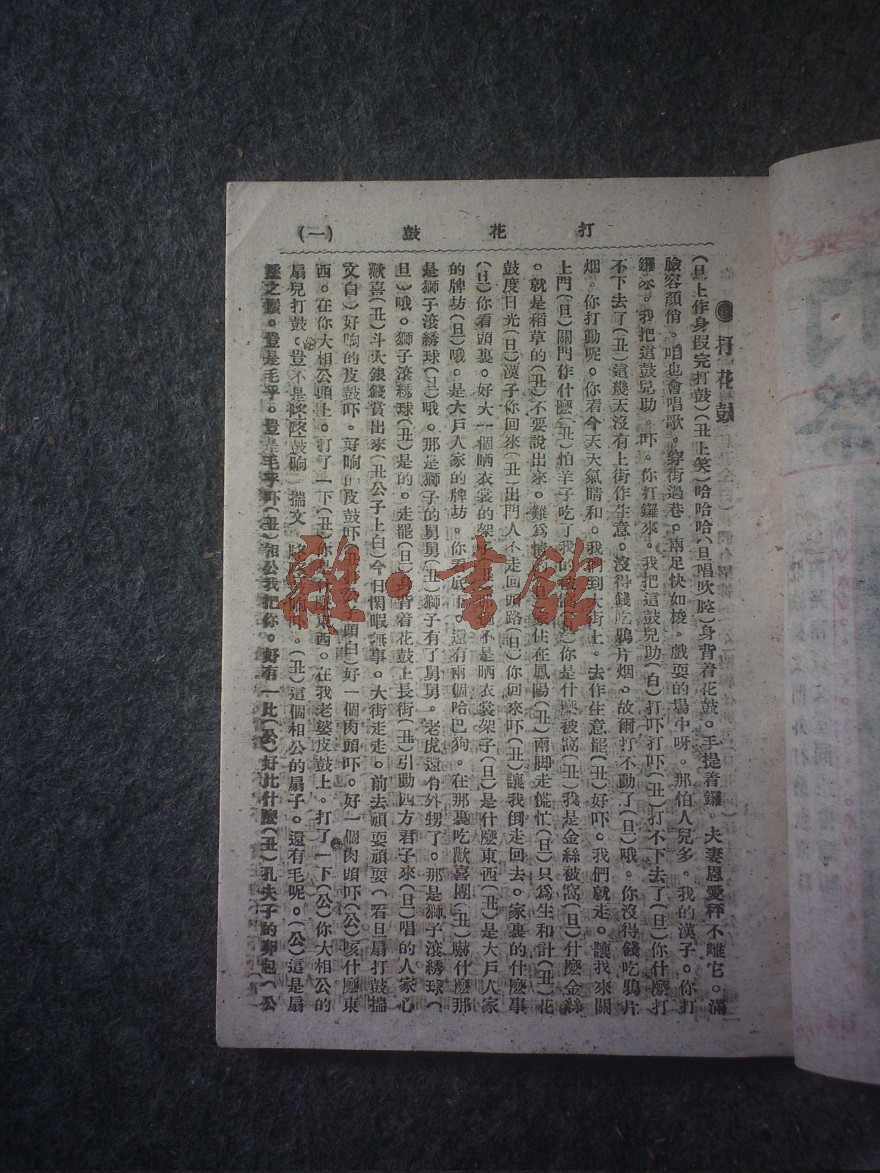 打花鼓 (一)
打花鼓
(旦上作身段完打鼓)(丑上笑)哈哈哈(旦唱吹腔)身背着花鼓。手提着鑼。夫妻恩愛秤不離它。滿
臉容顏俏。咱也會唱歌。穿街過巷。兩足快如梭。戲耍的場中呀。那怕人兒多。我的漢子。你打
鑼來。我把這鼓兒助。吓。你打鑼來。我把這鼓兒助(白)打吓打吓(丑)打不下去了(旦)你什麼打
不下去了(丑)這幾天沒有上街作生意。沒得錢吃鴉片烟。故爾打不動了(旦)哦。你沒得錢吃鴉片
烟。你打動呢。你看今天天氣晴和。我到街上。去作生意罷(丑)好吓。我們就走。讓我來關
上門(旦)關門作什麼(丑)怕羊子吃了我的(旦)你是什麼被窩(丑)我是金絲被窩(旦)什麼金絲
。就是稻草的(丑)不要說出來。難爲情 家住在鳳陽(丑)兩脚走慌忙(旦)只爲生和計(丑)花
鼓度日光(旦)漢子你回來(丑)出門人不走回頭路(旦)你回來吓(丑)讓我倒走回去。家裏的什麼事
(旦)你看頭裏。好大一個晒衣裳的架子(丑) 不是晒衣裳架子(旦)是什麼東西(丑)是大戶人家
的牌坊(旦)哦。是大戶人家的牌坊。你看底下。還有兩個哈巴狗。在那裏吃歡喜團(丑)嚇什麼那
是獅子滾綉球(旦)哦。那是獅子的舅舅(丑)獅子有了舅舅。老虎還有外甥了。那是獅子滾綉球(
旦)哦。獅子滾綉球(丑)是的。走罷(旦)身背着花鼓上長街(丑)引動四方君子來(旦)唱的人家心
歡喜(丑)斗大銀錢賞出來(丑公子上白)今日閑暇無事。大街走走。前去頑耍頑耍(看旦扇打鼓揣
文白)好响的皮鼓吓。好响的皮鼓吓(丑 頭白)好一個肉頭吓。好一個肉頭吓(公)咳什麼東
西。在你大相公頭上。打了一下(丑)你是什麼東西。在我老婆皮鼓上。打了一下(公)你大相公的
扇兒打鼓。豈不是咚咚鼓响)揣文。 。(丑)這個相公的扇子。還有毛呢。(公)這是扇
墜之鬚。豈是毛乎。豈是毛乎吓(丑)相公我把你。好有一比(公)好比什麼(丑)孔夫子的卵包(公
雜·書館